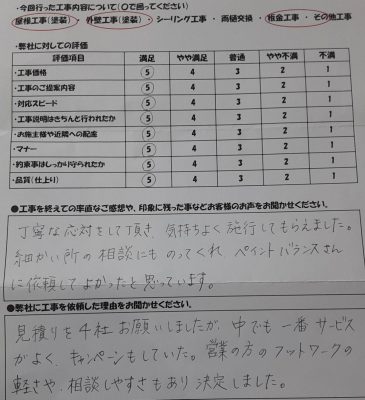 ・今回行った工事内容について(○で囲ってください)
屋根工事(塗装)・外壁工事(塗装)・シーリング工事・雨樋交換・板金工事・その他工事
・弊社に対しての評価
評価項目 満足 やや満足 普通 やや不満 不満
・工事価格 5 4 3 2 1
・工事のご提案内容 5 4 3 2 1
・対応スピード 5 4 3 2 1
・工事説明はきちんと行われたか 5 4 3 2 1
・お施主様や近隣への配慮 5 4 3 2 1
・マナー 5 4 3 2 1
・約束事はしっかり守られたか 5 4 3 2 1
・品質(仕上り) 5 4 3 2 1
●工事を終えての率直なご感想や、印象に残った事などお客様のお声をお聞かせください。
丁寧な応対をして頂き、気持ちよく施行してもらえました。
細かい所の相談にものってくれ、ペイントバランスさん
に依頼してよかったと思っています。
●弊社に工事を依頼した理由をお聞かせください。
見積りを4社お願いしましたが、中でも一番サービス
がよく、キャンペーンもしていた。営業の方のフットワークの
軽さや、相談しやすさもあり決定しました。